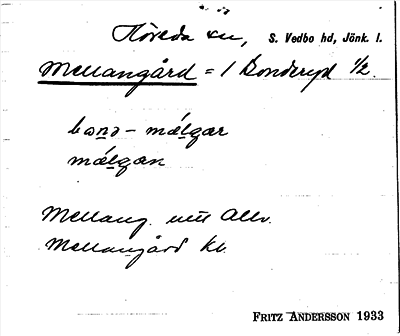 Flöreda sn, S. Vedbo hd, Jönk. l.
Mellangård = 1 Bonderyd 1/2.
bɷnə- málgar
málgan
Mellang. utt Allv.
Mellangård kb.
FRITZ ANDERSSON 1933